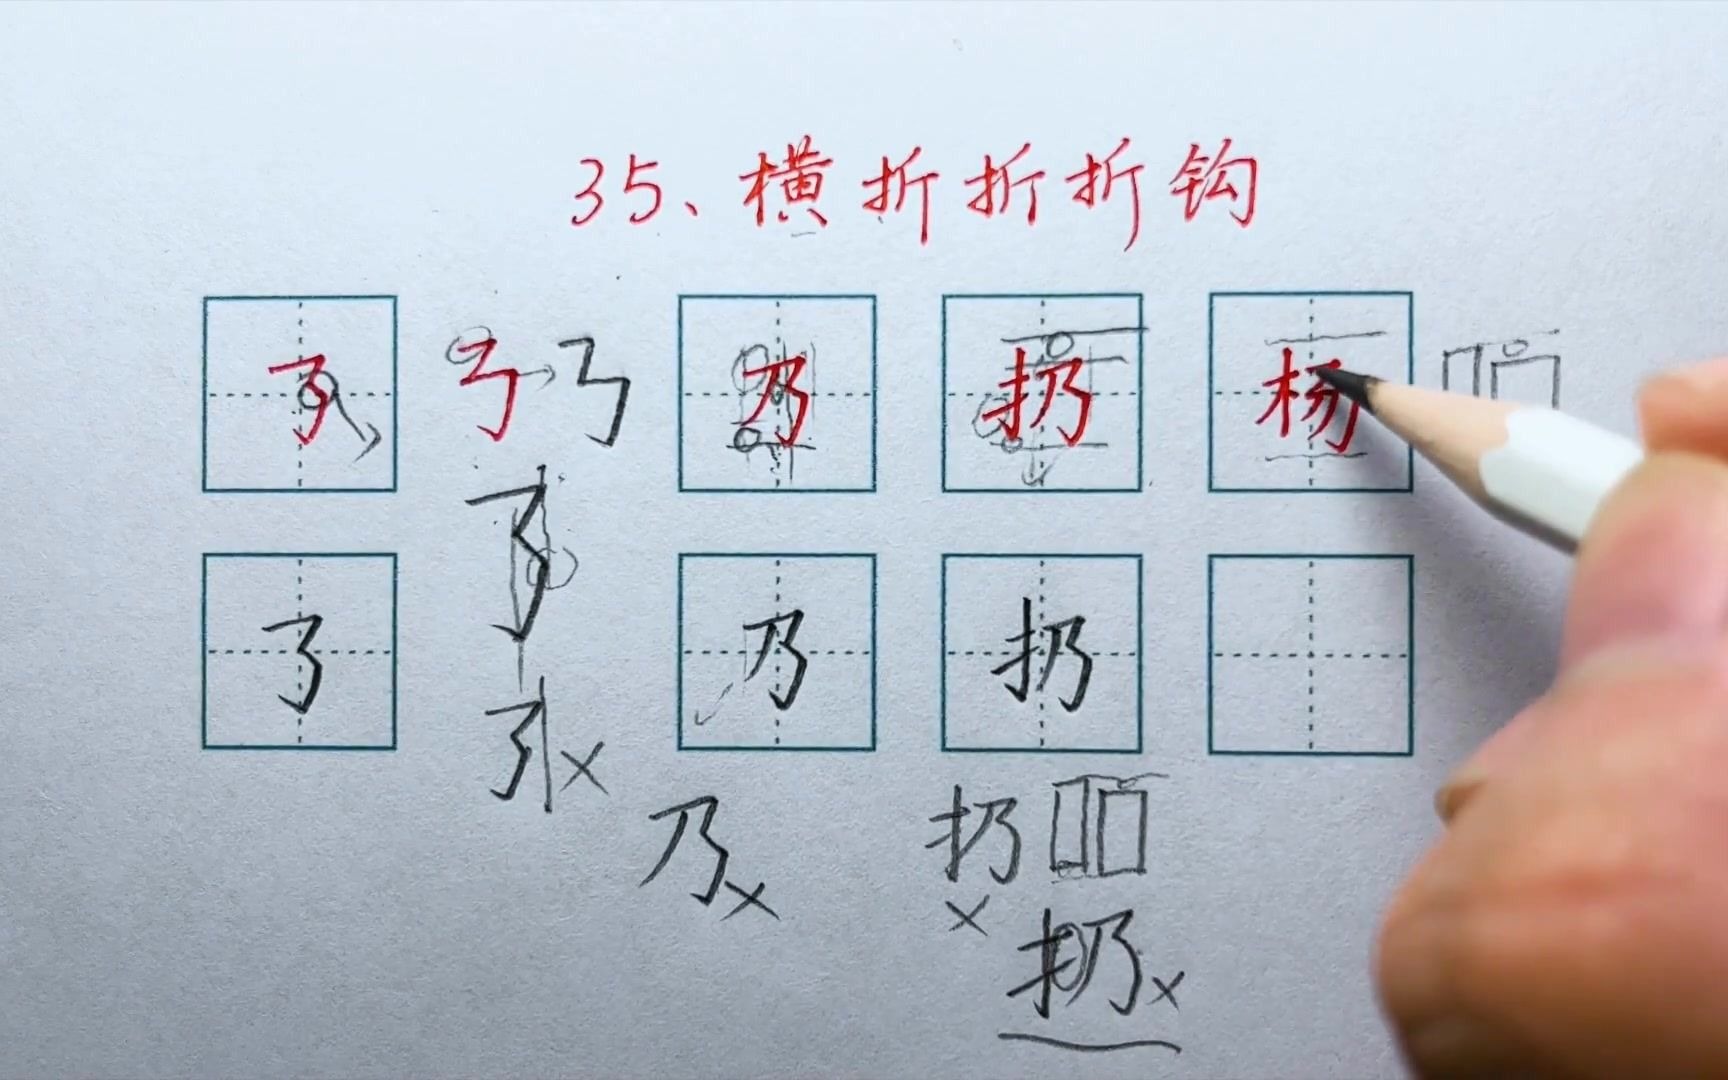 35、横折折折钩
乃 扔 杨
乃 扔
乃×
扔
×
扔×